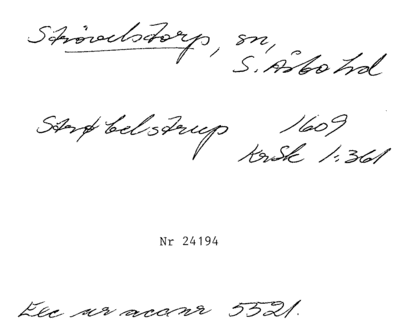 Strövelstorp, sn,
S. Åsbo hd
Strøbelstrup 1609
KrSk 1:361
Nr 24194
Exc ur acc nr 5521.